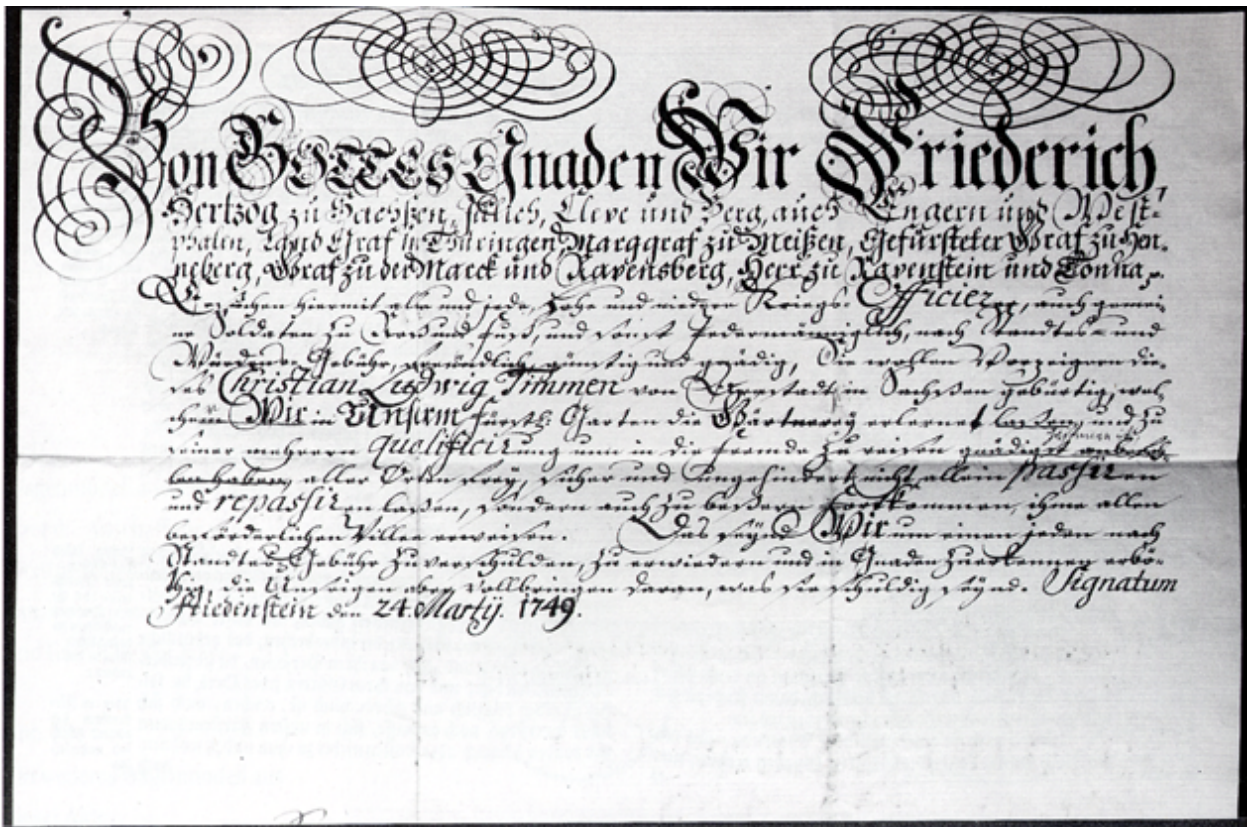 Von GOTTES Gnaden Wir Friederich,
Hertzog zu Sachßen, Jülich, Cleve und Berg, auch Engern und West-
phalen, Land Graf in Thüringen, Marggraf zu Meißen, Gefürsteter Graf zu Hen-
neberg, Graf zu der Marck und Ravensberg, Herr zu Ravenstein und Tonna,
hiermit alle und jede, hohe und niedere Kriegs-Officier, auch gemei-
ne Soldaten zu Roß und Fuß, und sonst Jedermänniglich, nach Standes- und
Würden Gebühr, freündlich, günstig und gnädig, Sie wollen Vorzeigern die-
ses Christian Ludwig Timmen von in Sachßen gebürtig, wel-
chem Wir in Unserm Fürstl. Garten die Gärtnerey erlernet laßen, und zu
seiner mehrern qualificirung nun in die Fremde zu reisen gnädigst
len haben, aller Orten frey, sicher und ungehindert nicht allein passiren
und repassiren laßen, sondern auch zu beßern Fortkommen, ihme allen
beförderlichen Willen erweisen. Das seynd Wir um einen jeden nach
Standes-Gebühr zu verschulden, zu erwiedern und in Gnaden zu erkennen erbö-
thig, die Unsrigen aber vollbringen daran, was sie schuldig seynd. Signatum
Friedenstein den 24. Martij. 1749.